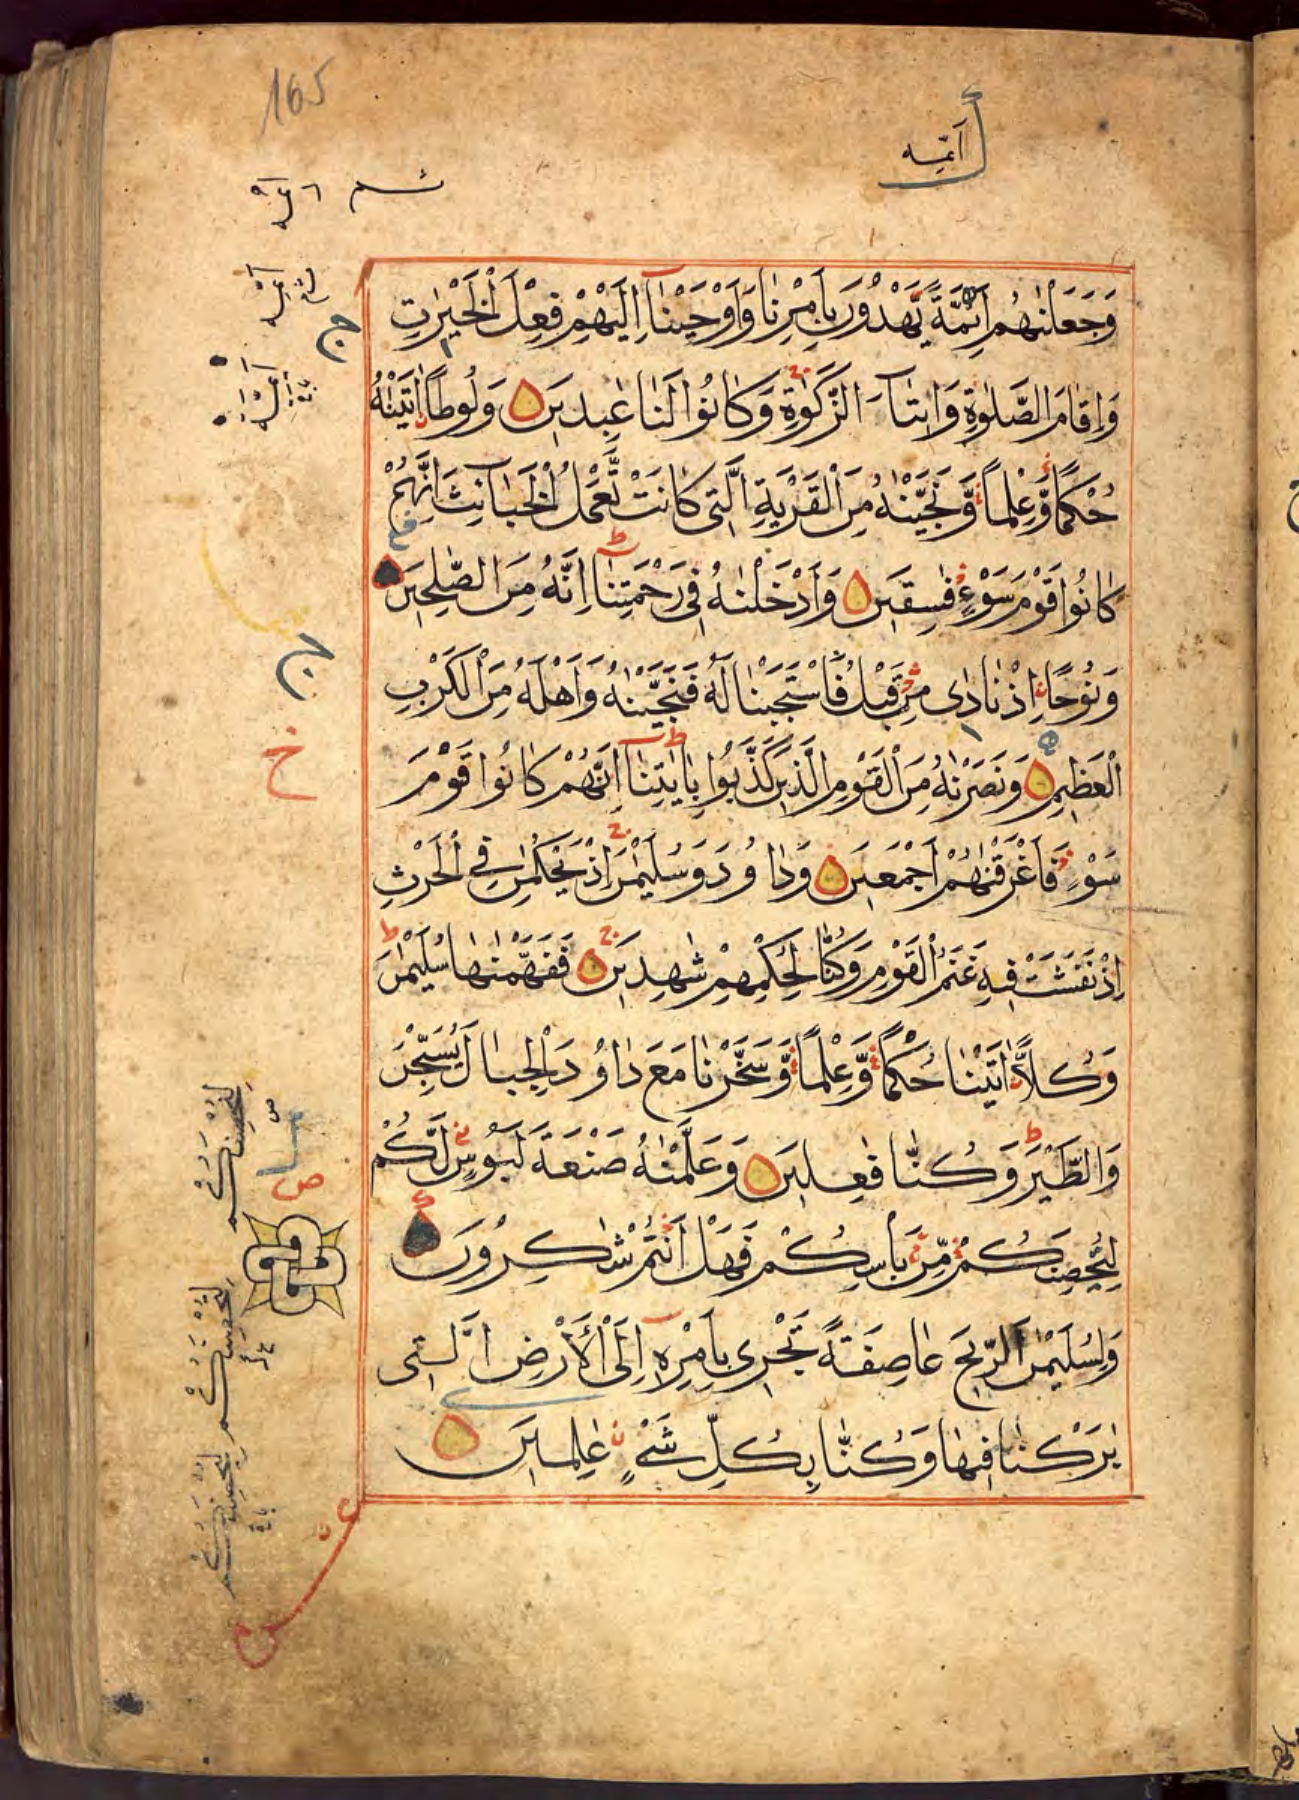 165
أئمه
وَجَعَلْنٰهُمْ اَئِمَّةً يَّهْدُوْنَ بِاَمْرِنَا وَاَوْحَيْنَا اِلَيْهِمْ فِعْلَ الْخَيْرٰتِ
وَاِقَامَ الصَّلٰوةِ وَاِيْتَاءَ الزَّكٰوةِ وَكَانُوْا لَنَا عٰبِدِيْنَ وَلُوْطًا اٰتَيْنٰهُ
حُكْمًا وَّعِلْمًا وَّنَجَّيْنٰهُ مِنَ الْقَرْيَةِ الَّتِى كَانَتْ تَّعْمَلُ الْخَبَائِثَ اِنَّهُمْ
كَانُوْا قَوْمَ سَوْءٍ فٰسِقِيْنَ وَاَدْخَلْنٰهُ فِى رَحْمَتِنَا اِنَّهُ مِنَ الصّٰلِحِيْنَ
وَنُوْحًا اِذْ نَادٰى مِنْ قَبْلُ فَاسْتَجَبْنَا لَهُ فَنَجَّيْنٰهُ وَاَهْلَهُ مِنَ الْكَرْبِ
الْعَظِيْمِ وَنَصَرْنٰهُ مِنَ الْقَوْمِ الَّذِيْنَ كَذَّبُوْا بِاٰيٰتِنَا اِنَّهُمْ كَانُوْا قَوْمَ
سَوْءٍ فَاَغْرَقْنٰهُمْ اَجْمَعِيْنَ وَدَاوُدَ وَسُلَيْمٰنَ اِذْ يَحْكُمٰنِ فِى الْحَرْثِ
اِذْ نَفَشَتْ فِيْهِ غَنَمُ الْقَوْمِ وَكُنَّا لِحُكْمِهِمْ شٰهِدِيْنَ فَفَهَّمْنٰهَا سُلَيْمٰنَ
وَكُلًّا اٰتَيْنَا حُكْمًا وَّعِلْمًا وَّسَخَّرْنَا مَعَ دَاوُدَ الْجِبَالَ يُسَبِّحْنَ
وَالطَّيْرَ وَكُنَّا فٰعِلِيْنَ وَعَلَّمْنٰهُ صَنْعَةَ لَبُوْسٍ لَّكُمْ
لِتُحْصِنَكُمْ مِّنْ بَاْسِكُمْ فَهَلْ اَنْتُمْ شٰكِرُوْنَ
وَلِسُلَيْمٰنَ الرِّيْحَ عَاصِفَةً تَجْرِى بِاَمْرِهِ اِلَى الْاَرْضِ الَّتِى
بٰرَكْنَا فِيْهَا وَكُنَّا بِكُلِّ شَىْءٍ عٰلِمِيْنَ
ج
ج
خ
ص